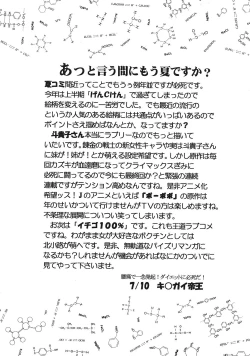 あっと言う間にもう夏ですか？
夏コミ間近ってことでもうぅ例年並ですが必死です。
今年は上半期「げんしけん」で過ぎてしまったので
絵柄を変えるのに一苦労した。でも最近の流行の
というか人気のある絵柄には共通点がいっぱいあるので
ポイントさえ掴めばなんとか、なってますか？
斗貴子さん本当にラブリーなのでもっと描いて
いたいです。錬金の戦士の新女性キャラや実は斗貴子さん
に妹が！姉が！とか萌える設定希望です。しかし原作は毎
回カズキが血溜まりになっててクライマックス並みに
必死に闘ってるので今にも最終回か？と緊張の連続
連載ですがテンション高めなんですね。是非アニメ化
希望ッス！のアニメといえば「ボーボボ」の原作は
年のせいかついて行けませんがTVの方は楽しめますね。
不条理な展開についつい笑ってしまいます。
お次は「イチゴ100%」です。これも王道ラブコメ
ですね。わがまま女が大好きなボクチンとしては
北川路が萌へです。是非、無軌道なパイズリマンガに
なるかも？しれませんが機会があればなにかのついでに
見てやって下さいませ。
7/10 キ〇ガイ帝王